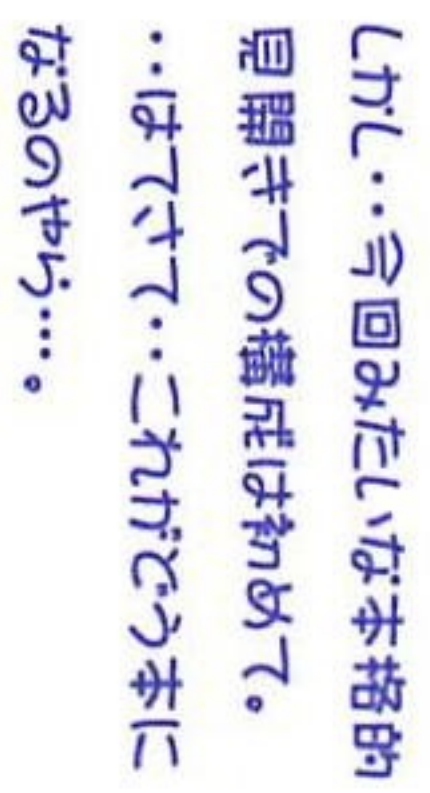 しかし‥今回みたいな本格的
見開きでの構成は初めて。
‥はてさて‥これがどう本に
なるのやら…。